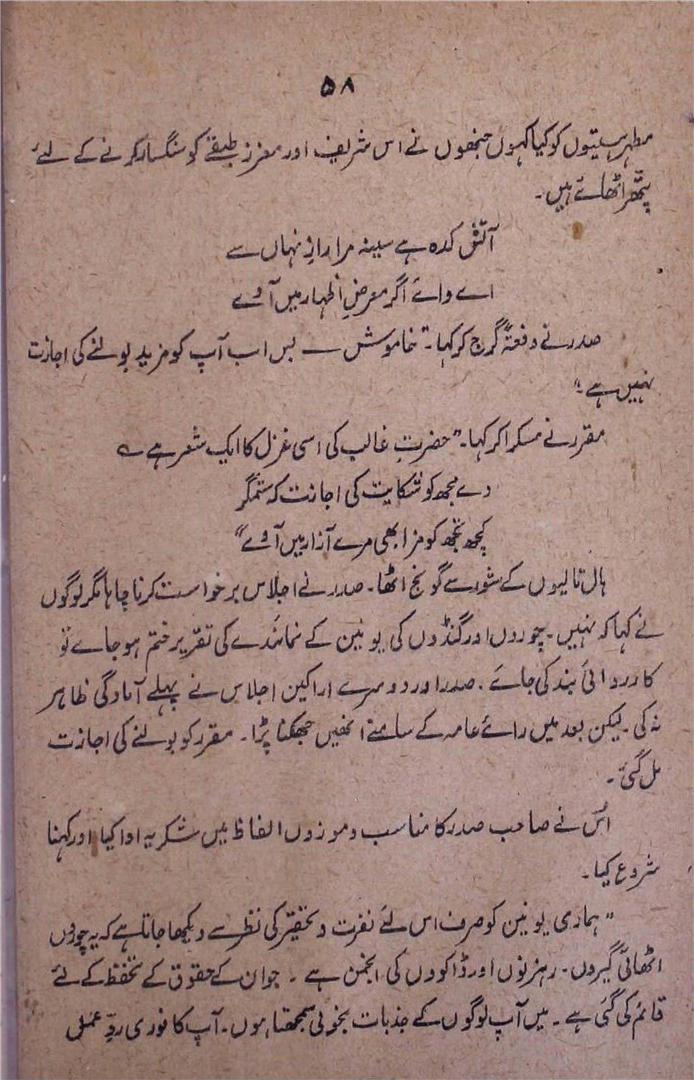 ۵۸
مطہر ہستیوں کو کیا کہوں جنھوں نے اس شریف اور معزز طبقے کو سنگسار کرنے کے لئے
پتھر اٹھائے ہیں۔
آتش کدہ ہے سینہ مرا رازِ نہاں سے
اے وائے اگر معرضِ اظہار میں آوے
صدر نے دفعتہً گرج کر کہا۔ "خاموش — بس اب آپ کو مزید بولنے کی اجازت
نہیں ہے"
مقرر نے مسکرا کر کہا۔ "حضرتِ غالب کی اسی غزل کا ایک شعر ہے ؎
دے مجھ کو شکایت کی اجازت کہ ستمگر
کچھ تجھ کو مزا بھی مرے آزار میں آوے"
ہال تالیوں کے شور سے گونج اٹھا۔ صدر نے اجلاس برخواست کرنا چاہا مگر لوگوں
نے کہا کہ نہیں۔ چوروں اور گنڈوں کی یونین کے نمائندے کی تقریر ختم ہو جائے تو
کارروائی بند کی جائے۔ صدر اور دوسرے اراکین اجلاس نے پہلے آمادگی ظاہر
نہ کی۔ لیکن بعد میں رائے عامہ کے سامنے انھیں جھکنا پڑا۔ مقرر کو بولنے کی اجازت
مل گئی۔
اُس نے صاحب صدر کا مناسب و موزوں الفاظ میں شکریہ ادا کیا اور کہنا
شروع کیا۔
"ہماری یونین کو صرف اس لئے نفرت و تحقیر کی نظر سے دیکھا جاتا ہے کہ یہ چوروں
اٹھائی گیروں۔ رہزنوں اور ڈاکوؤں کی انجمن ہے۔ جو ان کے حقوق کے تحفظ کے لئے
قائم کی گئی ہے۔ میں آپ لوگوں کے جذبات بخوبی سمجھتا ہوں۔ آپ کا فوری ردِّ عمل